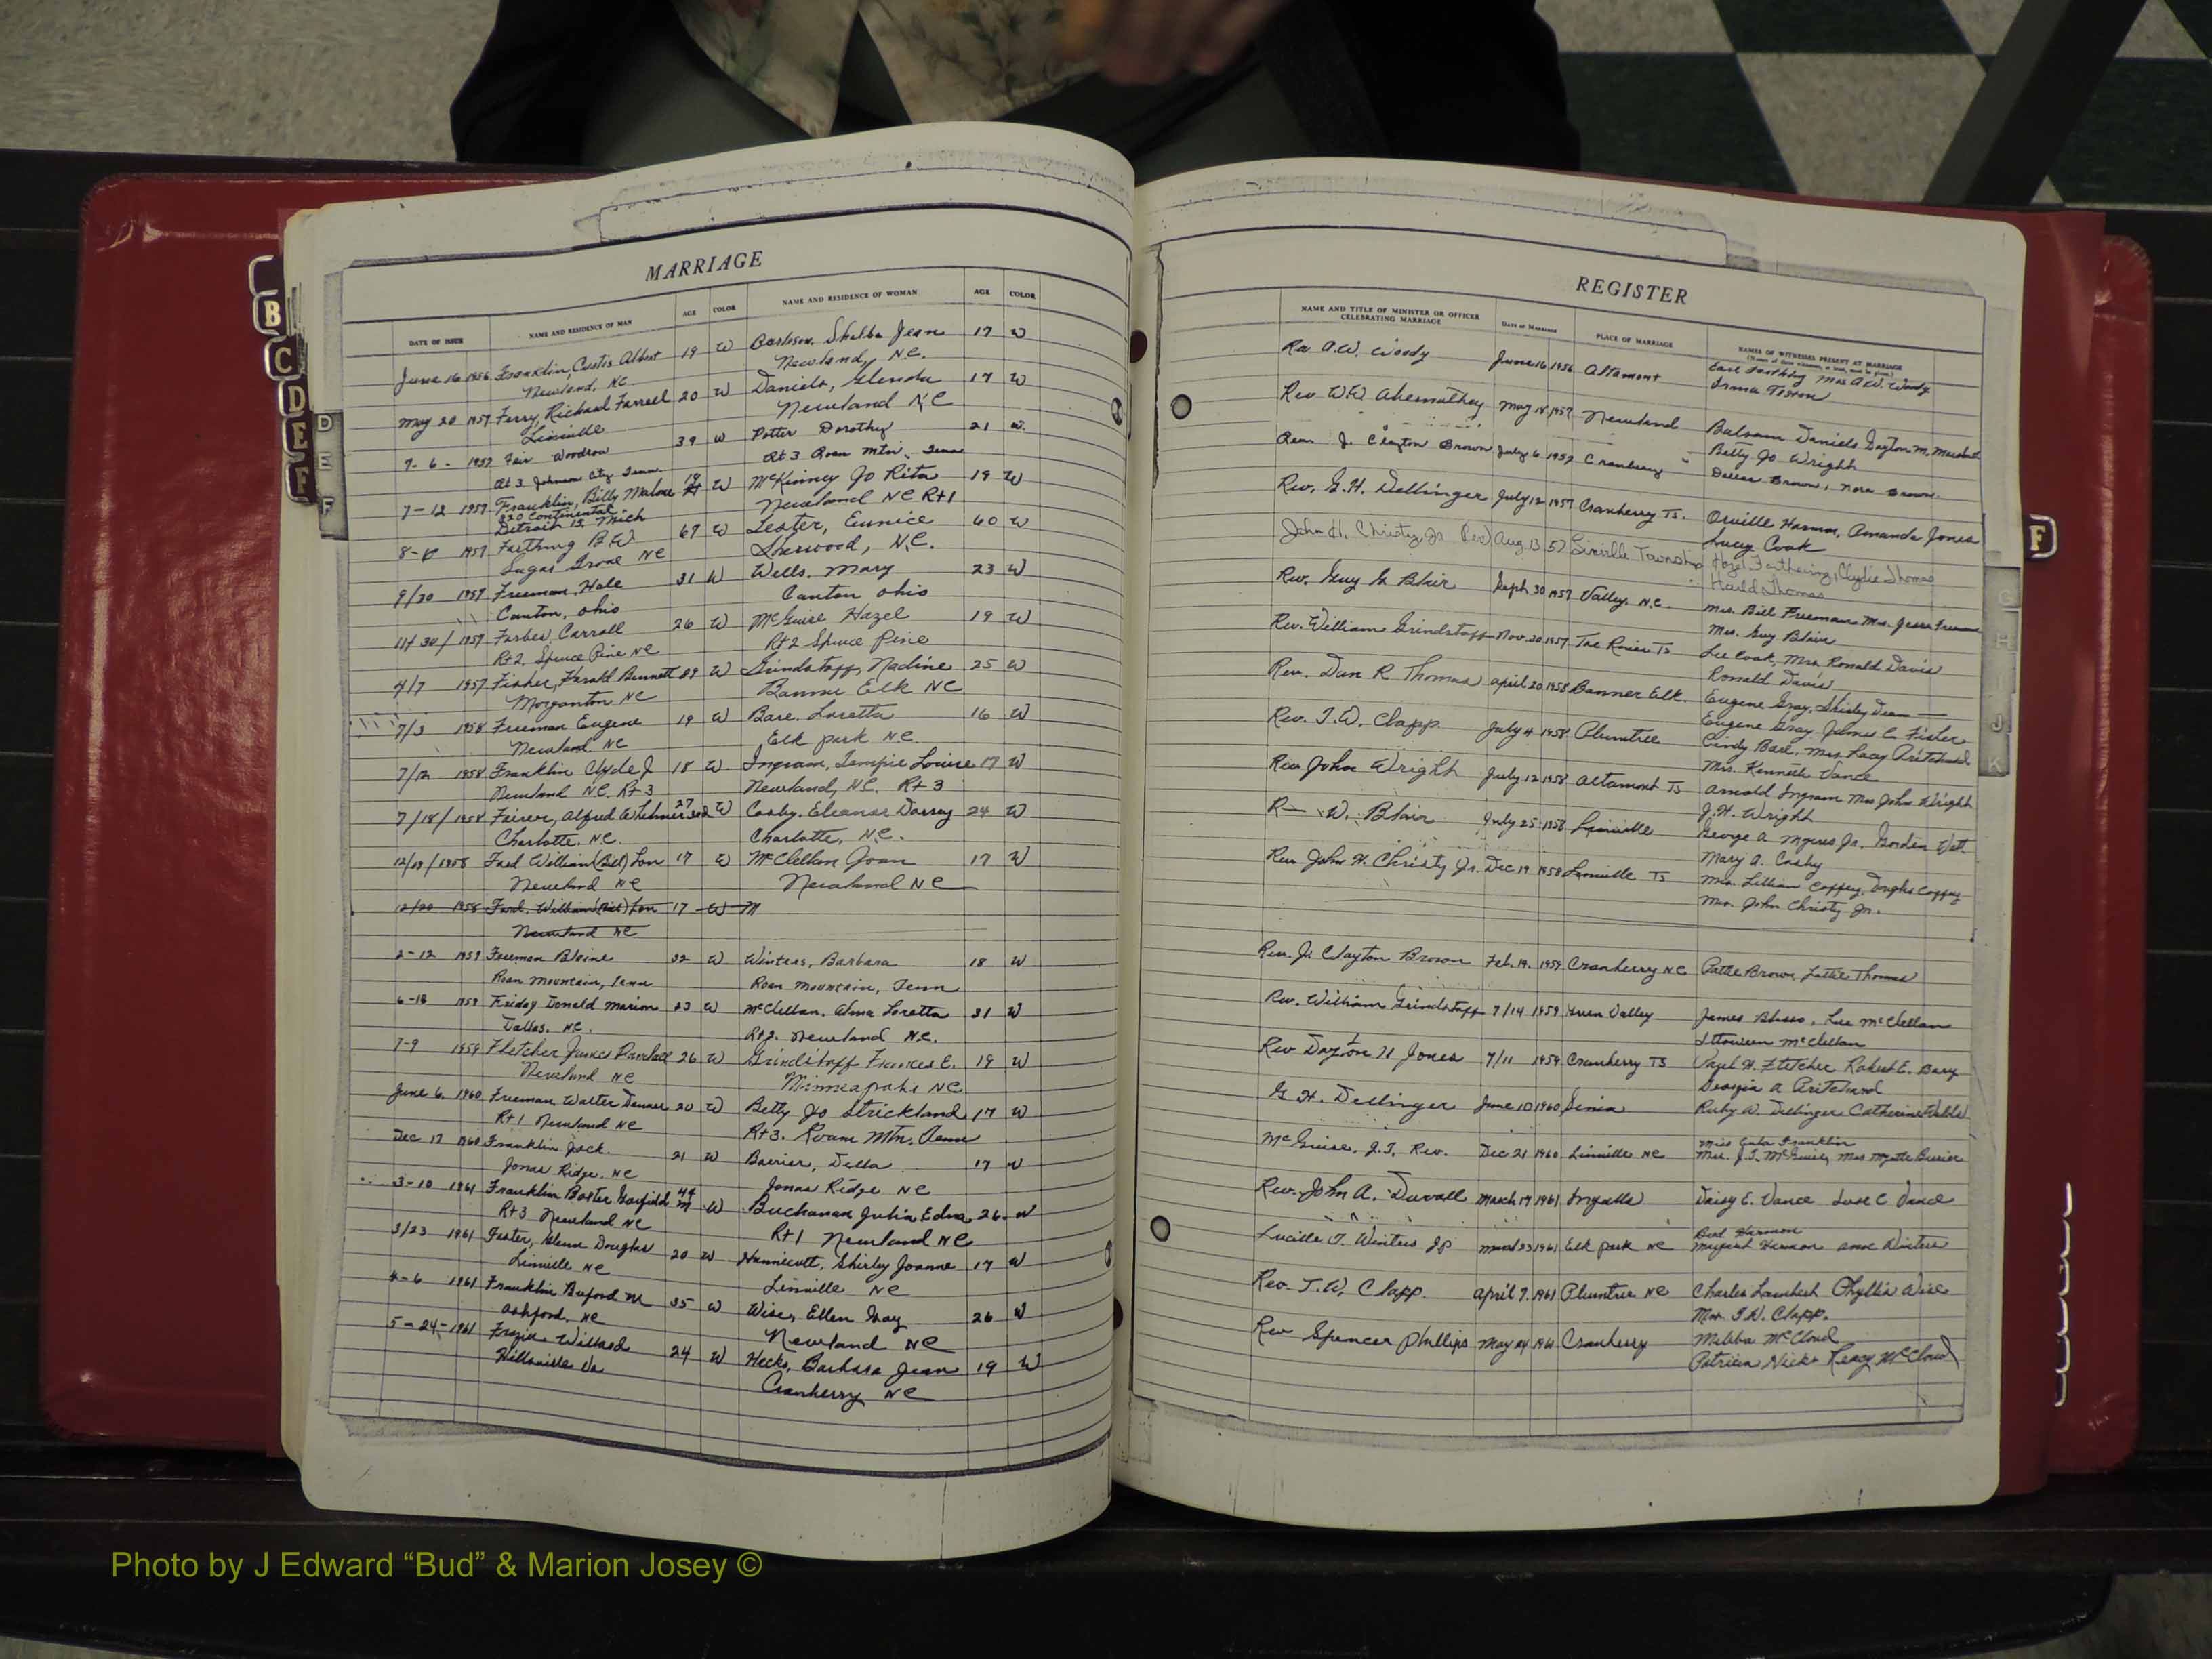 MARRIAGE
DATE OF ISSUE NAME AND RESIDENCE OF MAN AGE COLOR NAME AND RESIDENCE OF WOMAN AGE COLOR
June 16 1956 Franklin, Curtis Albert 19 W Burleson, Shelba Jean 17 W
Newland, NC. Newland, N.C.
May 20 1957 Ferry, Richard Farrell 20 W Daniels, Glenda 17 W
Linville Newland NC
7-6- 1957 Fair Woodrow 39 W Potter Dorothy 21 W.
Rt 3 Johnson City Tenn. Rt 3 Roan Mtn. Tenn
7-12 1957 Franklin, Billy Malone 19 W McKinney Jo Rita 19 W
820 Continental Newland NC Rt 1
Detroit 15, Mich
1957 Farthing B.W. 67 W Lester, Eunice 60 W
Sugar Grove NC Sherwood, N.C.
9/30 1957 Freeman, Hale 31 W Wells, Mary 23 W
Canton, Ohio Canton Ohio
11/30/1957 Forbes, Carroll 26 W McGuire Hazel 19 W
Rt 2, Spruce Pine NC Rt 2 Spruce Pine
4/7 1957 Fisher, Harold Bennett 89 W Grindstaff, Nadine 25 W
Morganton NC Banner Elk NC
7/3 1958 Freeman Eugene 19 W Bare, Loretta 16 W
Newland NC Elk park NC.
7/12 1958 Franklin Clyde J 18 W Ingram, Tempie Louise 17 W
Newland NC. Rt 3 Newland, NC. Rt 3
7/18/1958 Alfred 27 W Cosby, Eleanor 24 W
Charlotte. NC. Charlotte, NC.
12/19/1958 Ford William (Bill) Lon 17 W McClellan Joan 17 W
Newland NC Newland NC
12/20 1958 Ford, William (Bill) Lon 17 W M
Newland NC
2-12 1959 Freeman Blaine 32 W Winters, Barbara 18 W
Roan Mountain, Tenn Roan Mountain, Tenn
6-18 1959 Friday Donald Marion 23 W McClellan, Alma Loretta 31 W
Dallas, NC. Rt 2. Newland N.C.
7-9 1959 Fletcher James Randall 26 W Grindstaff Frances E. 19 W
Newland NC Minneapolis NC
June 6, 1960 Freeman Walter 20 W Betty Jo Strickland 17 W
Rt 1 Newland NC Rt 3. Roan Mtn, Tenn
Dec 17 1960 Franklin Jack. 21 W Barrier, Della 17 W
Jonas Ridge. NC Jonas Ridge NC
3-10 1961 Franklin Baxter Garfield 44 W Buchanan Julia Edna 26 W
Rt 3 Newland NC Rt 1 Newland NC
3/23 1961 Foster, Glenn Douglas 20 W Hunnicutt, Shirley Joanne 17 W
Linville NC Linville NC
4-6 1961 Franklin Buford M 35 W Wise, Ellen Gay 26 W
Ashford, NC Newland NC
5-24-1961 Frazier Willard 24 W Hicks, Barbara Jean 19 W
Hillsville Va Cranberry NC
REGISTER
NAME AND TITLE OF MINISTER OR OFFICER CELEBRATING MARRIAGE DATE OF MARRIAGE PLACE OF MARRIAGE NAMES OF WITNESSES PRESENT AT MARRIAGE
Rev A.W. Woody June 16 1956 Altamont Earl Farthing Mrs A.W. Woody
Irma
Rev. W.W. Abernathey May 18, 1957 Newland Balsam Daniels
Betty Jo Wright
J. Clayton Brown July 6, 1957 Cranberry Brown, Nora Brown
Rev. G.H. Dellinger July 12 1957 Cranberry Ts. Orville Harmon, Amanda Jones
Lucy Cook
John H. Christy, Jr Rev) Aug 13 57 Linville Township Hazel Farthering, Clydie Thomas
Harld Thomas
Rev. Guy G Blair Sept 30 1957 Valley, N.C. Mrs. Bill Freeman Mrs. Jesse Freeman
Mrs. Guy Blair
Rev. William Grindstaff Nov. 30 1957 Toe River Ts Lee Cook, Mrs Ronald Davis
Ronald Davis
Rev. Dan R Thomas April 20 1958 Banner Elk. Eugene Gray, Shirley Dean
Eugene Gray James C. Fisher
Rev. T.W. Clapp. July 4 1958 Plumtree Cindy Bare, Mrs. Pritchard
Mrs. Kenneth Vance
Rev John Wright July 12 1958 Altamont Ts Arnold Ingram Mrs John Wright
J.H. Wright
R— W. Blair July 25 1958 Linville George A Myers Jr. Gorden Watt
Mary A. Cosby
Rev John H. Christy Jr. Dec 19 1958 Linville TS Mrs. Lillian Coffey, Douglas Coffey
Mrs. John Christy Jr.
Rev. J. Clayton Brown Feb. 14. 1959 Cranberry NC Brown, Thomas
Rev. William Grindstaff 7/14 1959 Valley James Lee McClellan
McClellan
Rev Dayton H Jones 7/11 1959 Cranberry TS H. Fletcher Robert E. Bary
Georgia A Pritchard
G H. Dellinger June 10 1960 Ruby W. Dellinger Catherine
McGuire, J.T, Rev. Dec 21 1960 Linville NC Miss Franklin
Mrs. J.T. McGuire, Mrs Myrtle Barrier
Rev. John A. Duvall March 17 1961 Ingalls Daisy E. Vance C Vance
Lucille T. Winters JP March 23 1961 Elk park NC Bud Harmon
Margaret Harmon Winters
Rev. T.W. Clapp. April 7. 1961 Plumtree NC Charles Lambert Phyllis Wise
Mrs. T.W. Clapp.
Rev Spencer Phillips May 24 1961 Cranberry McCloud
Patricia Hicks McCloud
B
C
D
E
F
D
E
F
F
G
H
J
K
Photo by J Edward “Bud” & Marion Josey ©